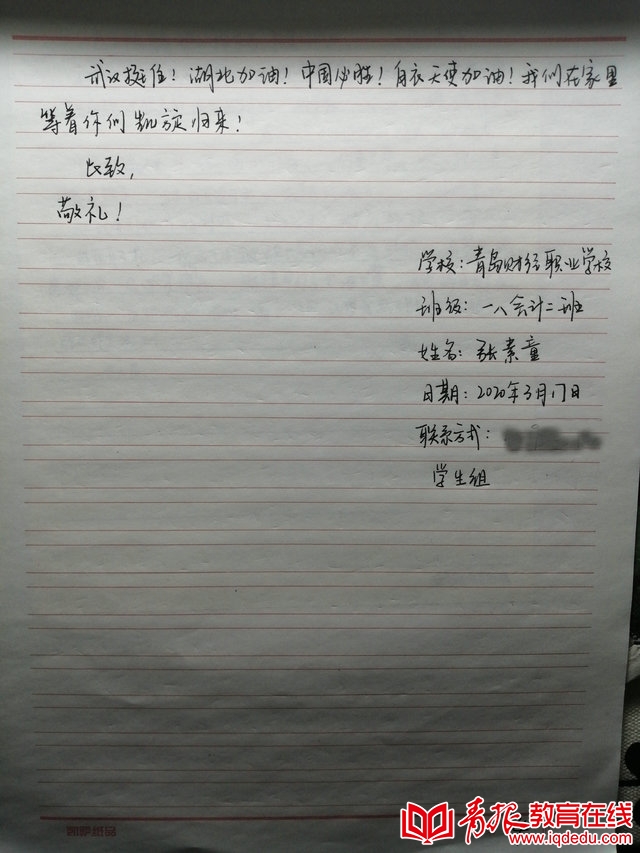 武汉挺住！湖北加油！中国必胜！白衣天使加油！我们在家里
等着你们凯旋归来！
此致，
敬礼！
学校：青岛财经职业学校
班级：一八会计二班
姓名：张素童
日期：2020年3月17日
联系方式：
学生组
凯萨纸品
青报教育在线
www.iqdedu.com